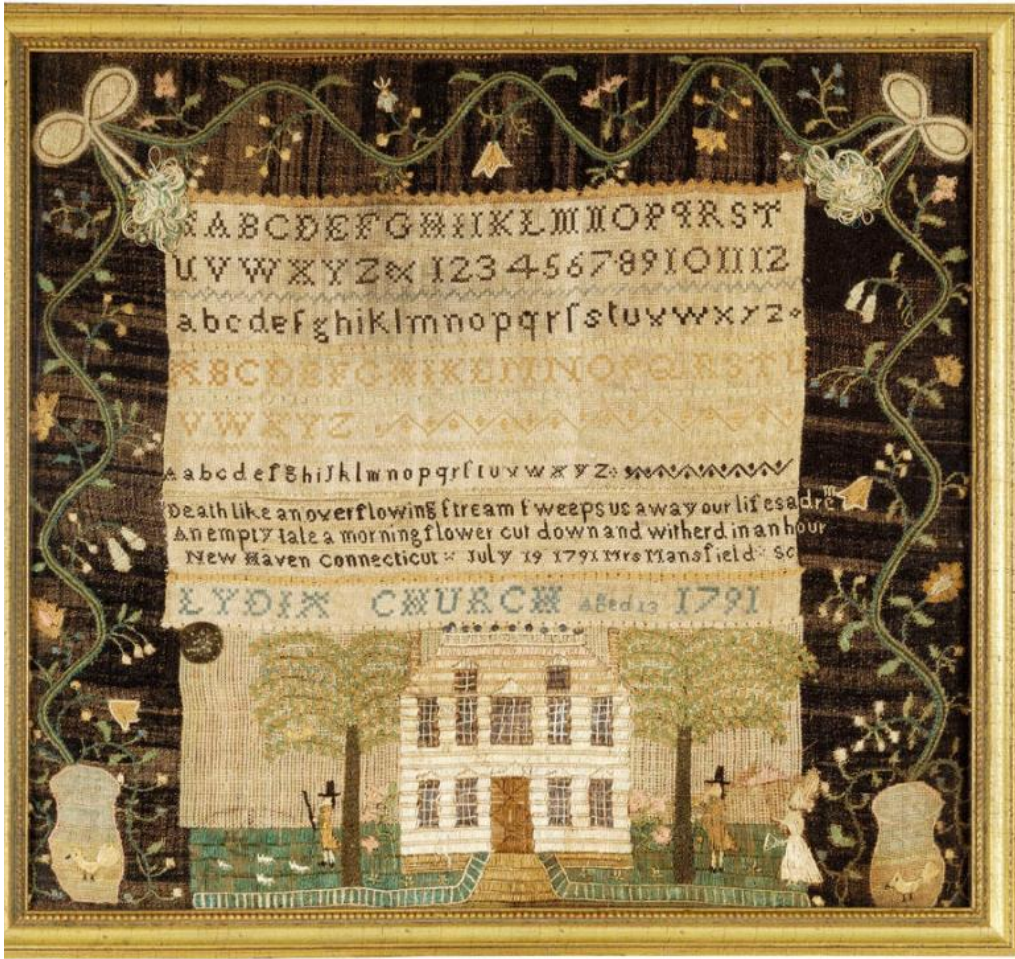 AABCDEFGHIJKLMNOPQRST
UVWXYZ& 123456789101112
abcdefghiklmnopqrſstuvwxyz
ABCDEFGHIKLMNOPQRSTU
VWXYZ
Aabcdefghijklmnopqrſtuvwxyz
Death like an overflowing ſtream ſweeps us away our lifes a drem
An empty tale a morning flower cut down and witherd in an hour
New Haven Connecticut July 19 1791 Mrs Mansfield Sc
LYDIA CHURCH Aged 13 1791